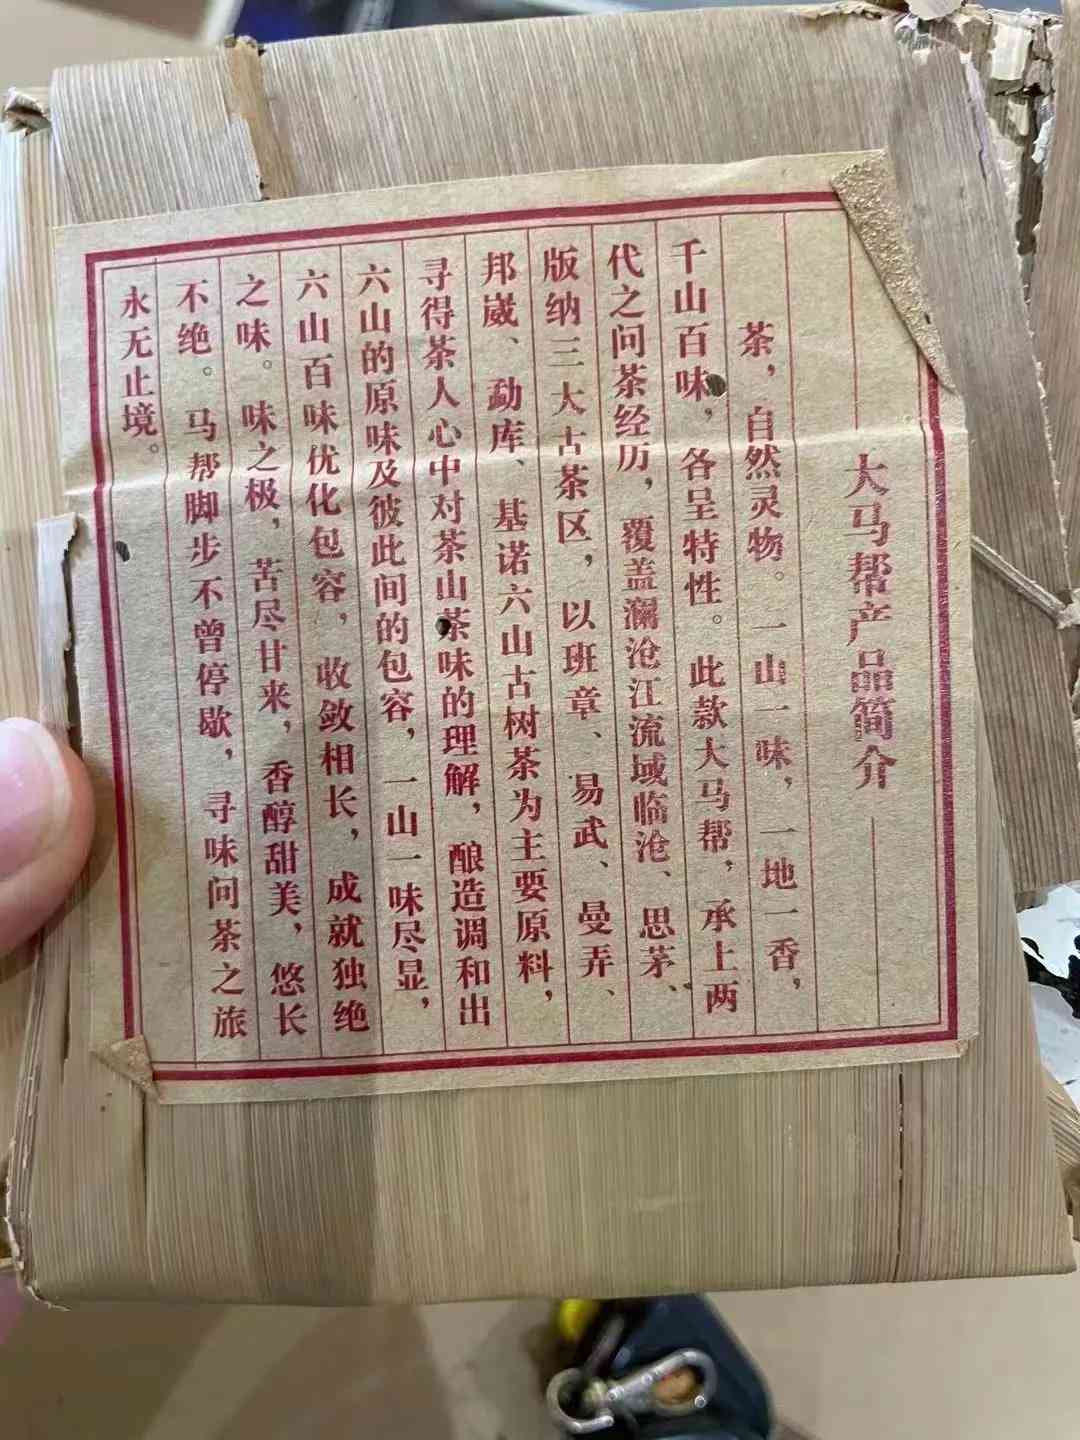 大马帮产品简介
茶，自然灵物。一山一味，一地一香，
千山百味，各呈特性。此款大马帮，承上两
代之问茶经历，覆盖澜沧江流域临沧、思茅、
版纳三大古茶区，以班章、易武、曼弄、
邦崴、勐库、基诺六山古树茶为主要原料，
寻得茶人心中对茶山茶味的理解，酿造调和出
六山的原味及彼此间的包容，一山一味尽显，
六山百味优化包容，收敛相长，成就独绝
之味。味之极，苦尽甘来，香醇甜美，悠长
不绝。马帮脚步不曾停歇，寻味问茶之旅
永无止境。